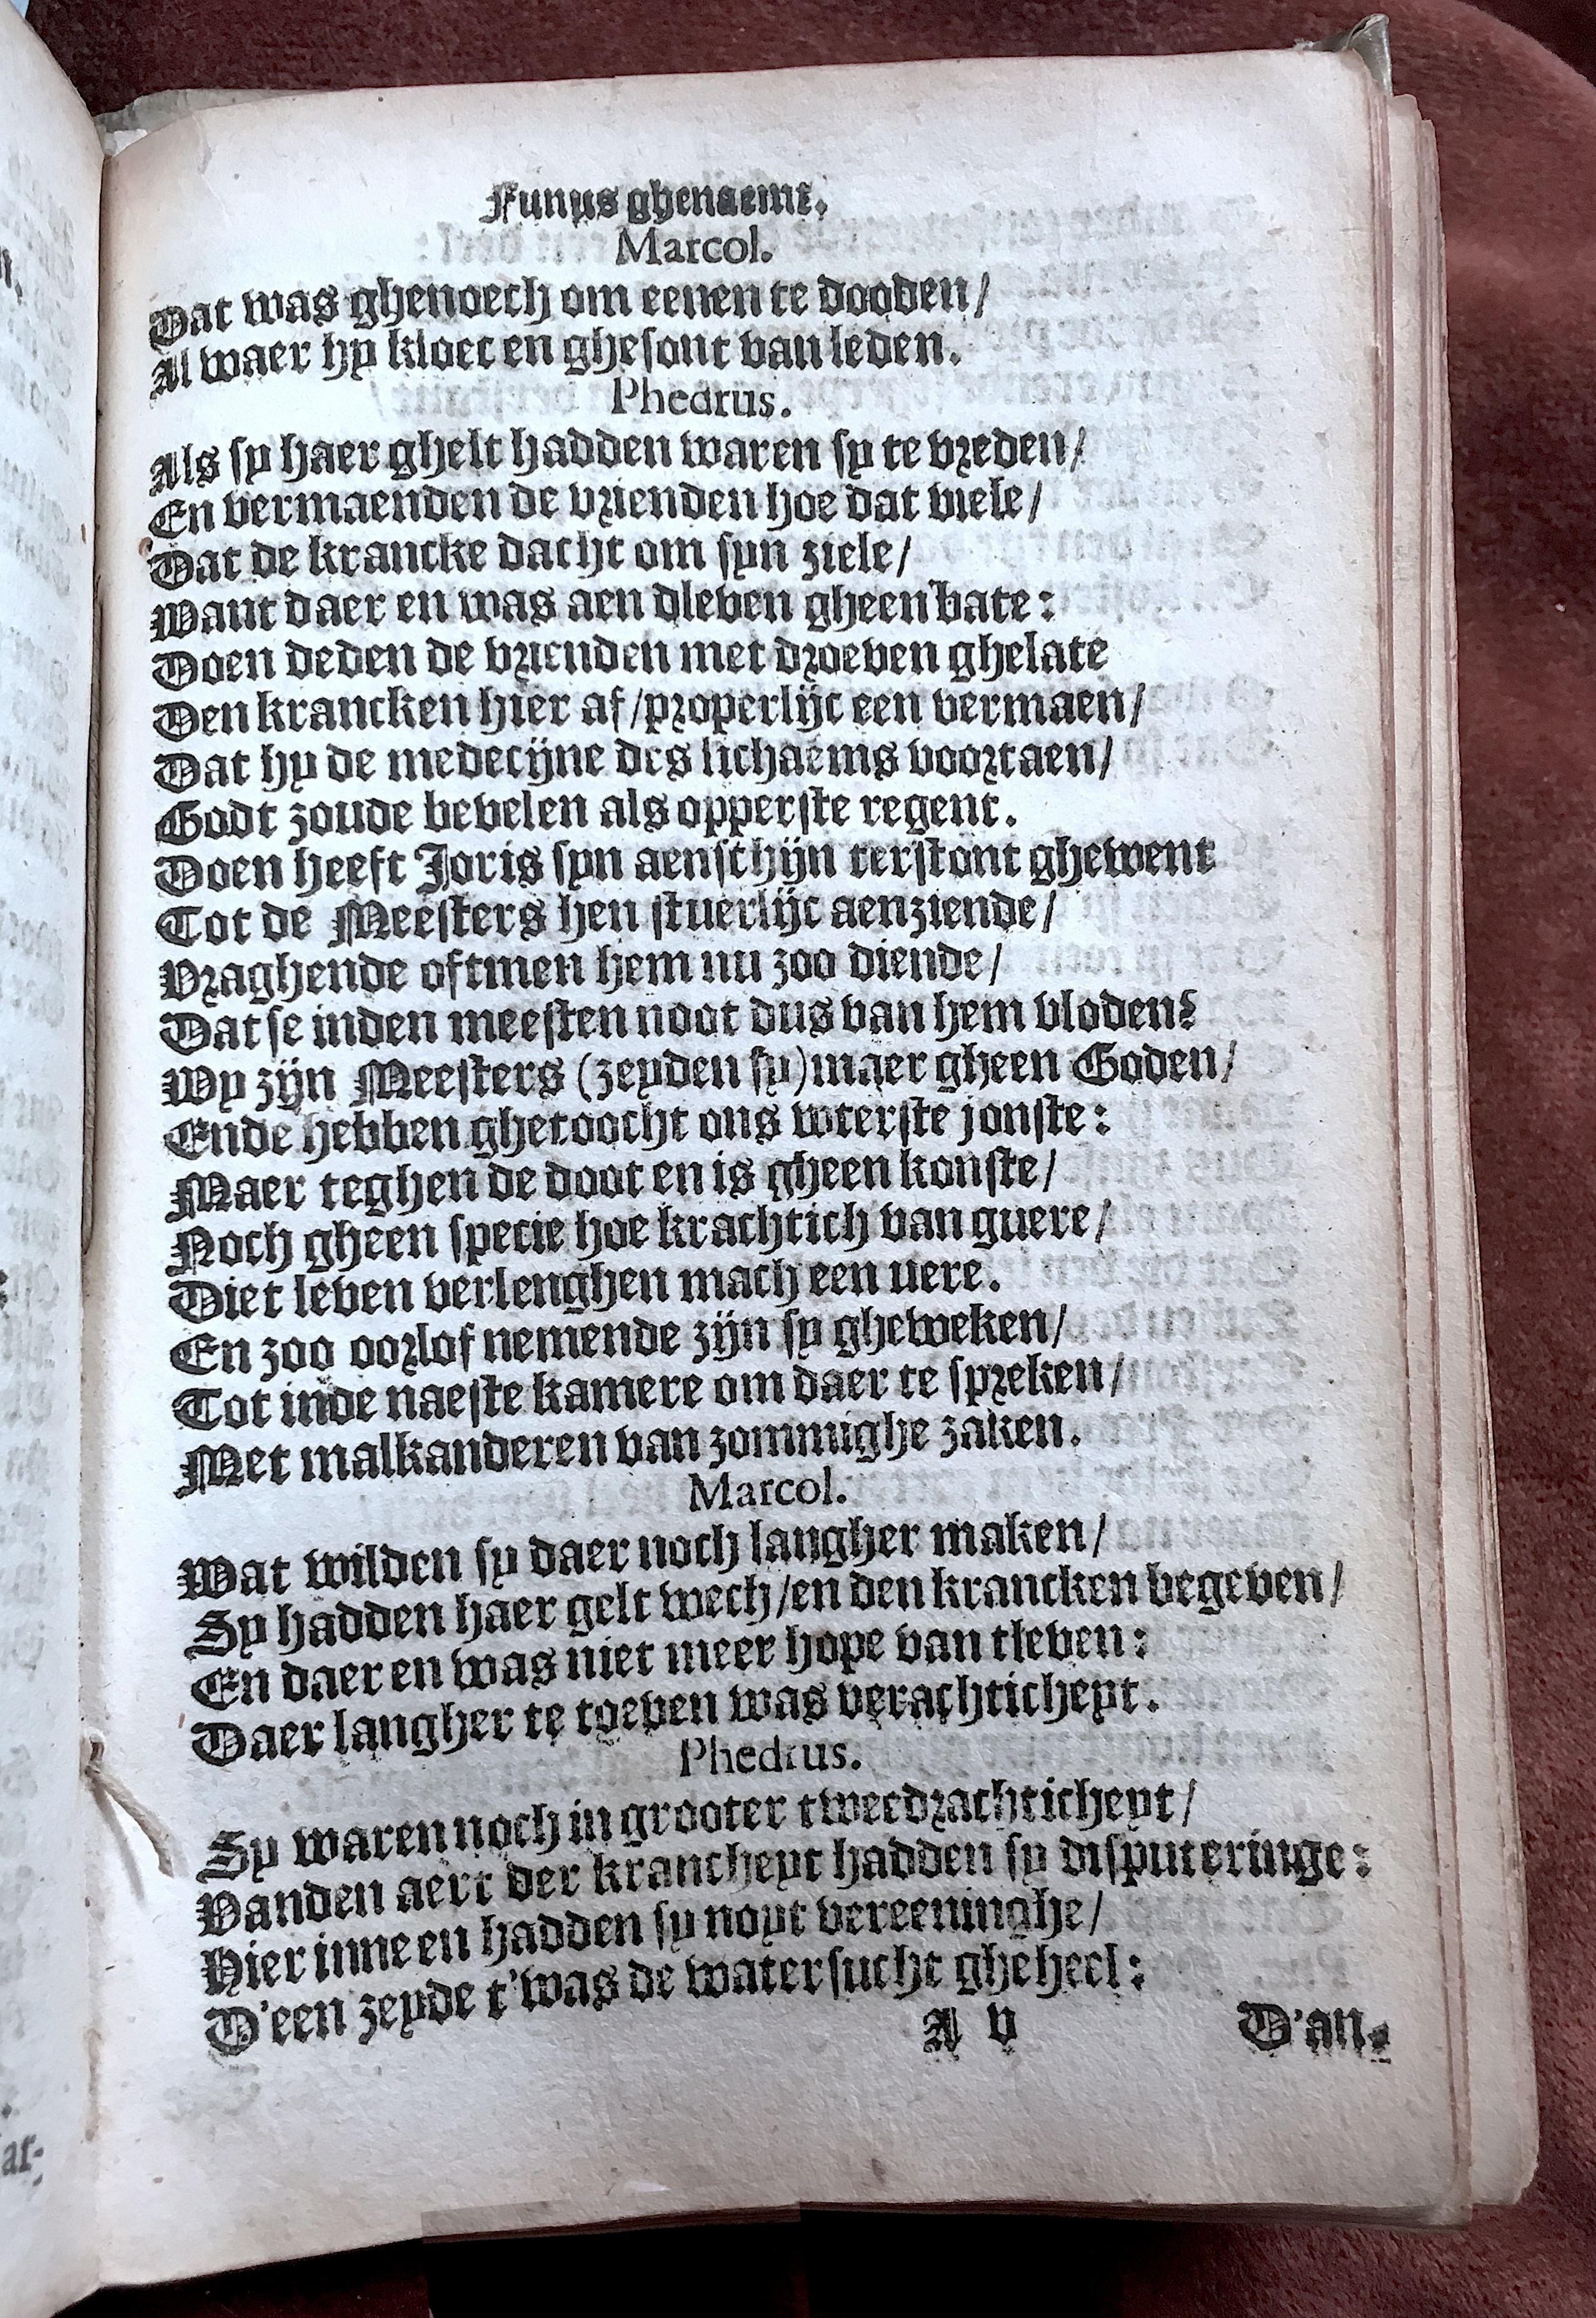 Funus ghenaemt.
Marcol.
Dat was ghenoech om eenen te dooden/
Al waer hy kloec en ghesont van leden.
Phedrus.
Als sy haer ghelt hadden waren sy te vreden/
En vermaenden de vrienden hoe dat viele/
Dat de krancke dacht om syn ziele/
Want daer en was aen dleven gheen bate:
Doen deden de vrienden met droeven ghelate
Den krancken hier af/properlijc een vermaen/
Dat hy de medecijne des lichaems voortaen/
Godt zoude bevelen als opperste regent.
Doen heeft Joris syn aenschijn terstont ghewent
Tot de Meesters hen stuerlijc aenziende/
Vraghende oftmen hem nu zoo diende/
Dat se inden meesten noot dus van hem vloden?
Wy zijn Meesters (zeyden sy) maer gheen Goden/
Ende hebben ghetoocht ons wterste jonste:
Maer teghen de doot en is gheen konste/
Noch gheen specie hoe krachtich van guere/
Diet leven verlenghen mach een uere.
En zoo oorlof nemende zijn sy gheweken/
Tot inde naeste kamere om daer te spreken/
Met malkanderen van zommighe zaken.
Marcol.
Wat wilden sy daer noch langher maken/
Sy hadden haer gelt wech/en den krancken begeven/
En daer en was niet meer hope van tleven:
Daer langher te toeven was verachticheyt.
Phedrus.
Sy waren noch in grooter tweedrachticheyt/
Vanden aert der krancheyt hadden sy disputeringe:
Hier inne en hadden sy noyt vereeninghe/
D'een zeyde t'was de watersucht gheheel:
A v D'an-
ar-